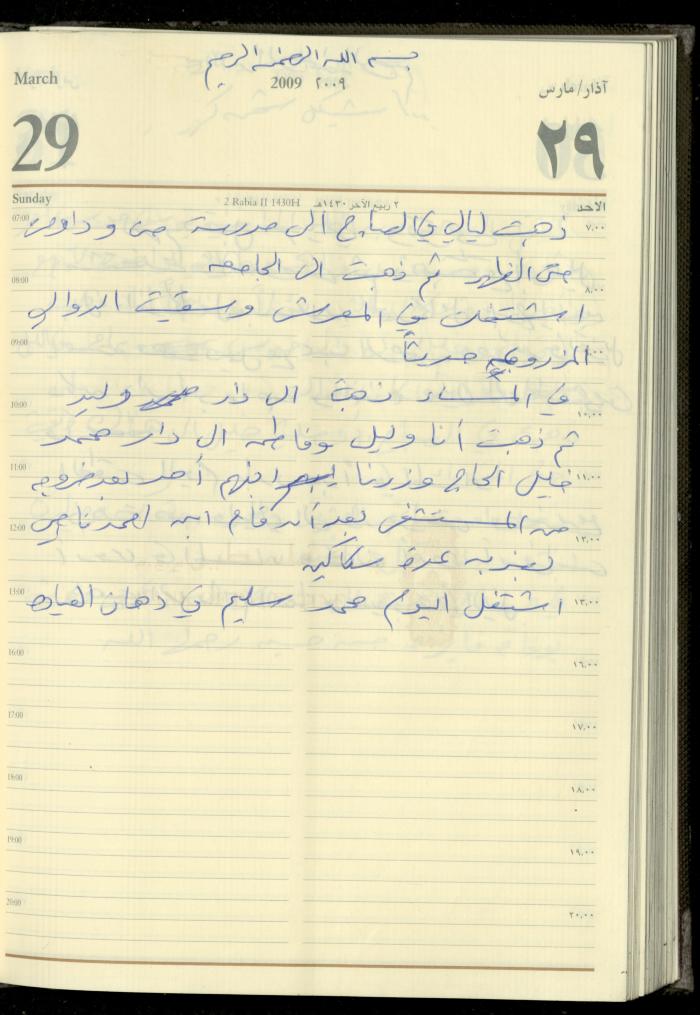 بسم الله الرحمن الرحيم
March 2009 ٢٠٠٩ آذار/مارس
29 ٢٩
Sunday 2 Rabia II 1430H ٢ ربيع الآخر ١٤٣٠هـ الأحد
07:00 ٧,٠٠
ذهبت ليالي في الصباح الى مدرسة جن وداومت
حتى الظهر ثم ذهبت الى الجامعه
08:00 ٨,٠٠
اشتغلت في المعرش وسقيت الدوالي
09:00
المزروعه حديثاً
في المساء ذهبت الى دار محمد وليد
10:00 ١٠,٠٠
ثم ذهبت أنا وليل وفاطمه الى دار محمد
11:00 ١١,٠٠
خليل الحاج وزرنا ابنهم أحمد بعد خروجه
من المستشفى بعد أن قام ابن احمد ناجي
12:00 ١٢,٠٠
بضربه عدة سكاكين
13:00 ١٣,٠٠
اشتغل اليوم محمد سليم في دهان العياده
16:00 ١٦,٠٠
17:00 ١٧,٠٠
18:00 ١٨,٠٠
19:00 ١٩,٠٠
20:00 ٢٠,٠٠